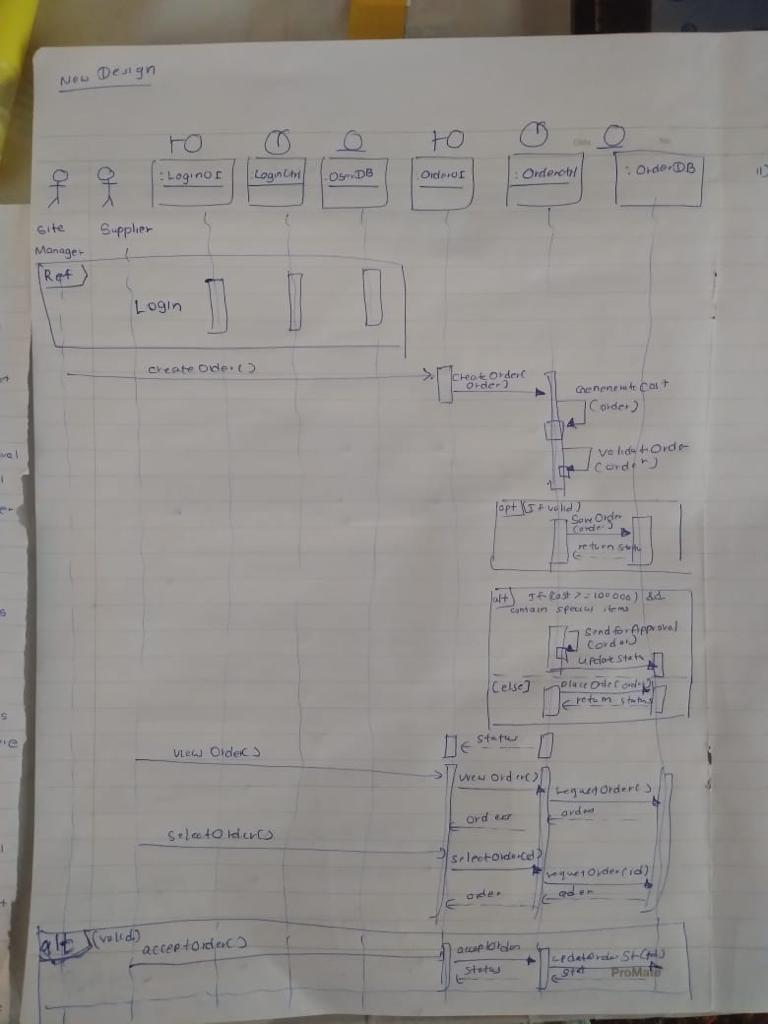 New Design
:LoginUI
:LoginCtrl
:UserDB
:OrderUI
:Orderctrl
:OrderDB
11)
Site
Manager
Supplier
Ref
Login
createOrder()
createOrder(
order)
Genenerate Cost
(order)
validateOrder
(order)
opt (If valid)
SaveOrder
(order)
return status
alt) If (cost >= 100000) &&
contain special items
SendforApproval
(order)
update Stats
[else]
placeOrde(order)
return status
status
view Order()
view Order()
requetOrder()
order
selectOrder()
selectOrder(id)
requetOrder(id)
order
oder
alt (valid)
acceptOrder()
accepOrder
updatOrder St(id)
status
stat
ProMate